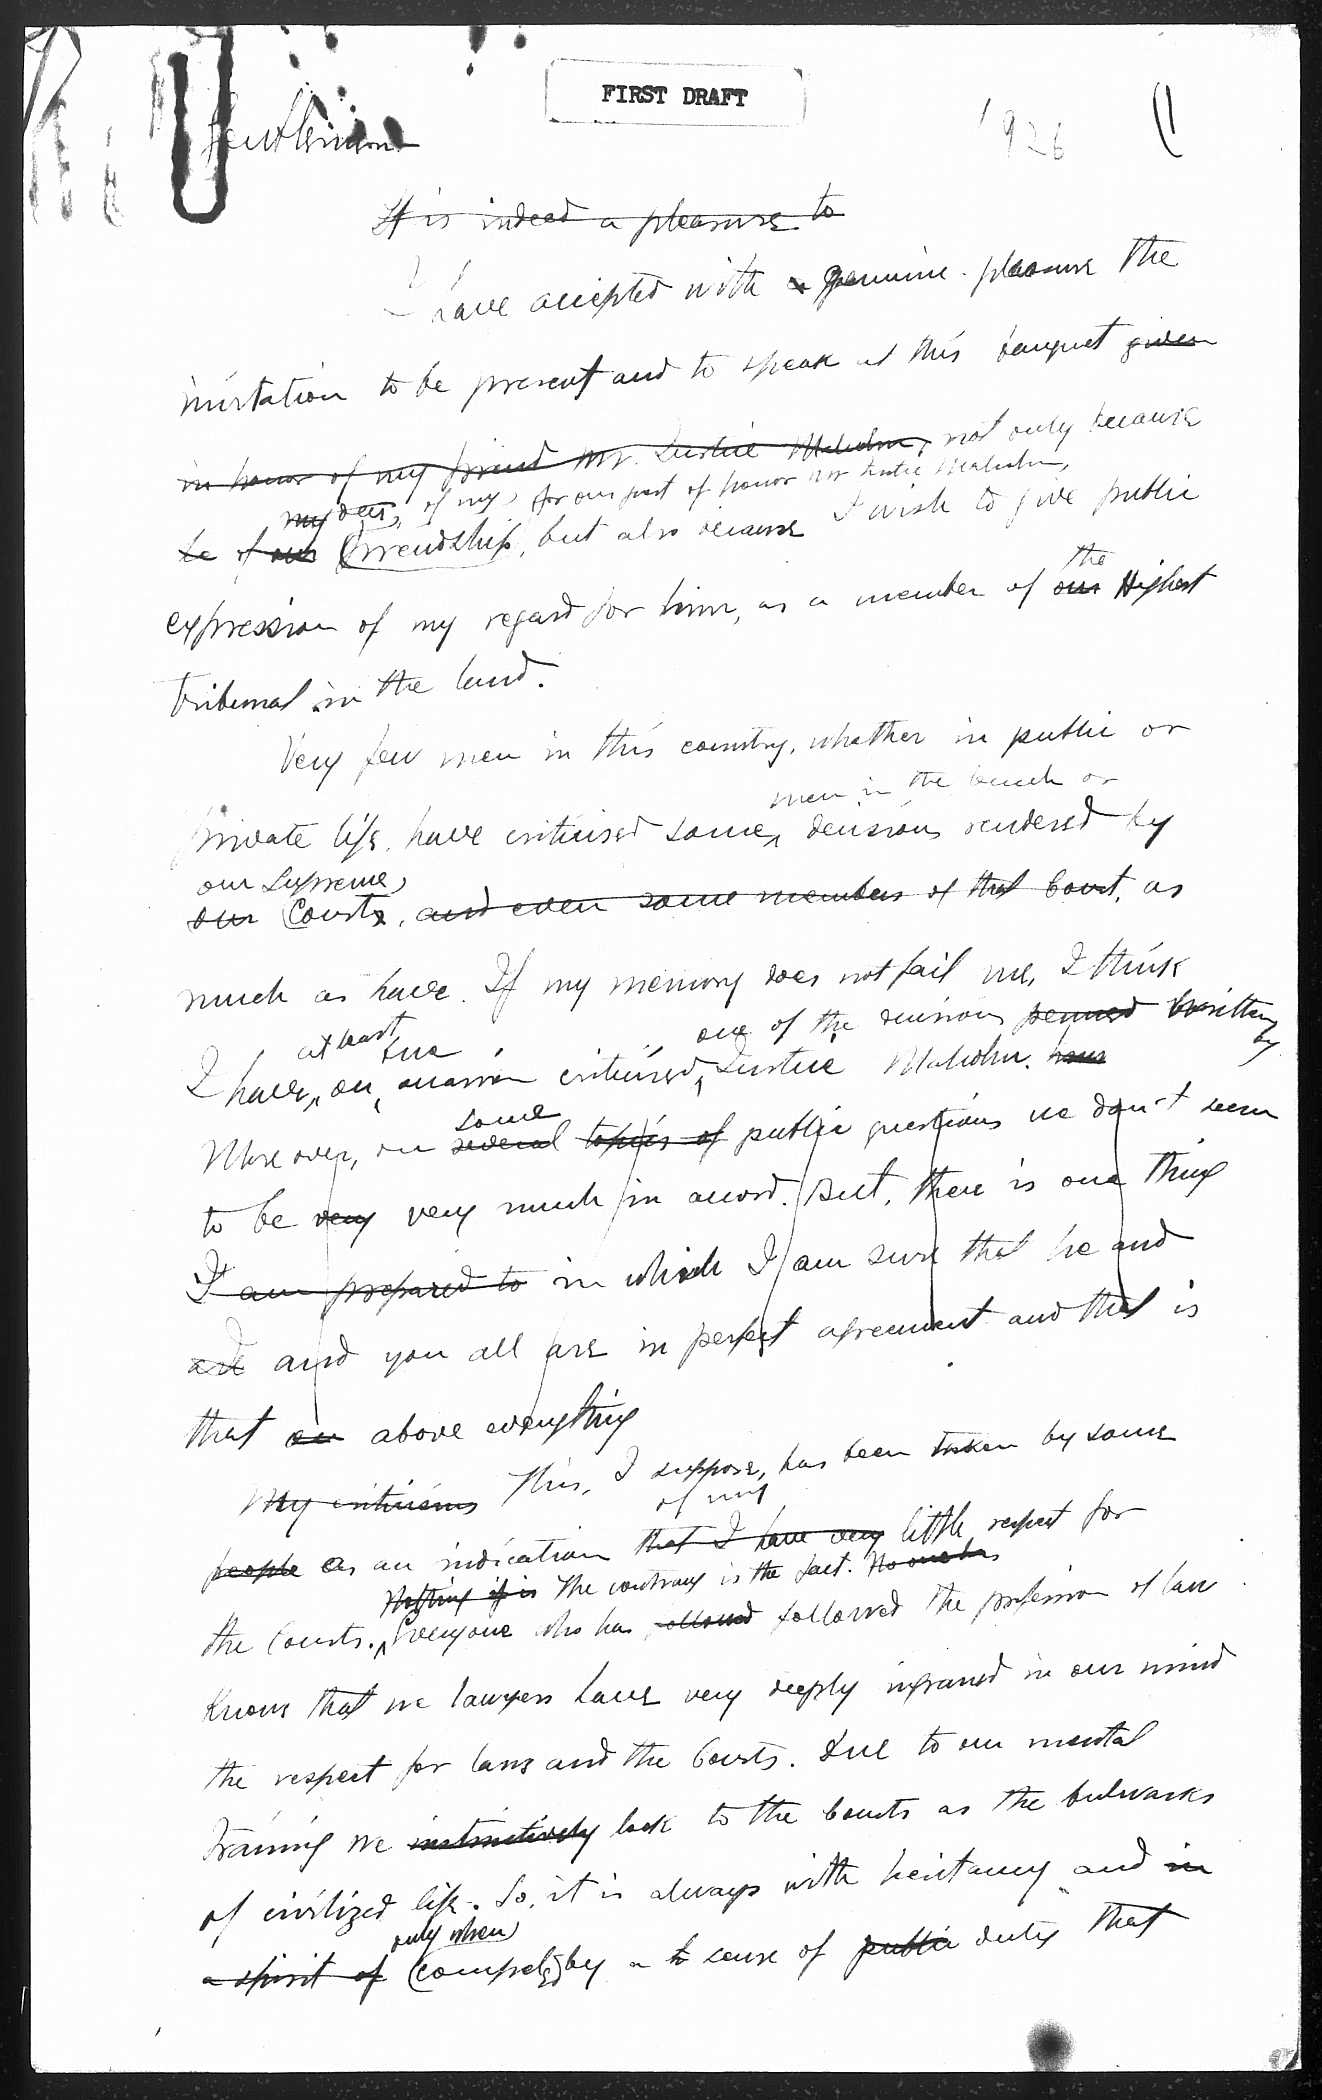 FIRST DRAFT
1926
Gentlemen
It is indeed a pleasure to
I have accepted with a genuine pleasure the
invitation to be present and to speak at this banquet given
in honor of my friend Mr. Justice Malcolm, not only because
my deep, of my, for our guest of honor Mr Justice Malcolm,
be of our friendship, but also because I wish to give public
the
expression of my regard for him, as a member of our Highest
tribunal in the land.
Very few men in this country, whether in public or
men in the bench or
private life, have criticised some decisions rendered by
our Supreme
our Courts, and even some members of that Court, as
much as have. If my memory does not fail me, I think
at least one one of the decisions penned written by
I have, on occasion criticised Justice Malcolm. have
some
Moreover, on several topics of public questions we don't seem
to be very very much in accord. But, there is one thing
I am prepared to in which I am sure that he and
and and you all are in perfect agreement and that is
that on above everything
My criticisms This, I suppose, has been taken by some
of my
people as an indication that I have very little respect for
Nothing if is The contrary is the fact. No one has
the Courts. Everyone who has followed followed the profession of law
knows that we lawyers have very deeply ingrained in our mind
the respect for laws and the Courts. Due to our mental
training we instinctively look to the Courts as the bulwarks
of civilized life. So, it is always with hesitancy and in
only when
a spirit of compelled by a sense of public duty that